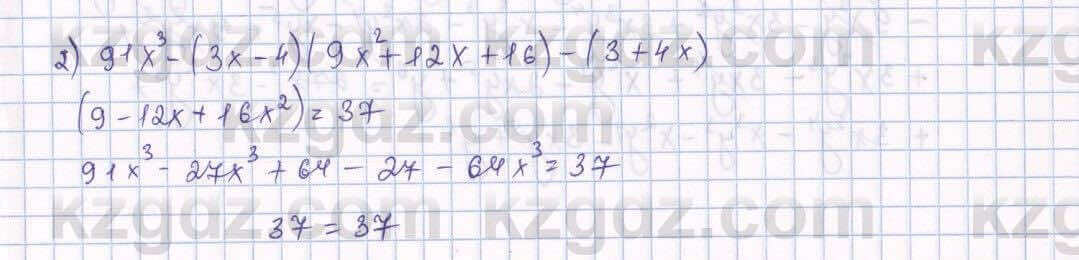 2) 91x³ - (3x - 4)(9x² + 12x + 16) - (3 + 4x)
(9 - 12x + 16x²) = 37
91x³ - 27x³ + 64 - 27 - 64x³ = 37
37 = 37
kzgdz.com kzgdz.com kzg
kzgdz.com
kzgdz.com kzgdz.com kzg